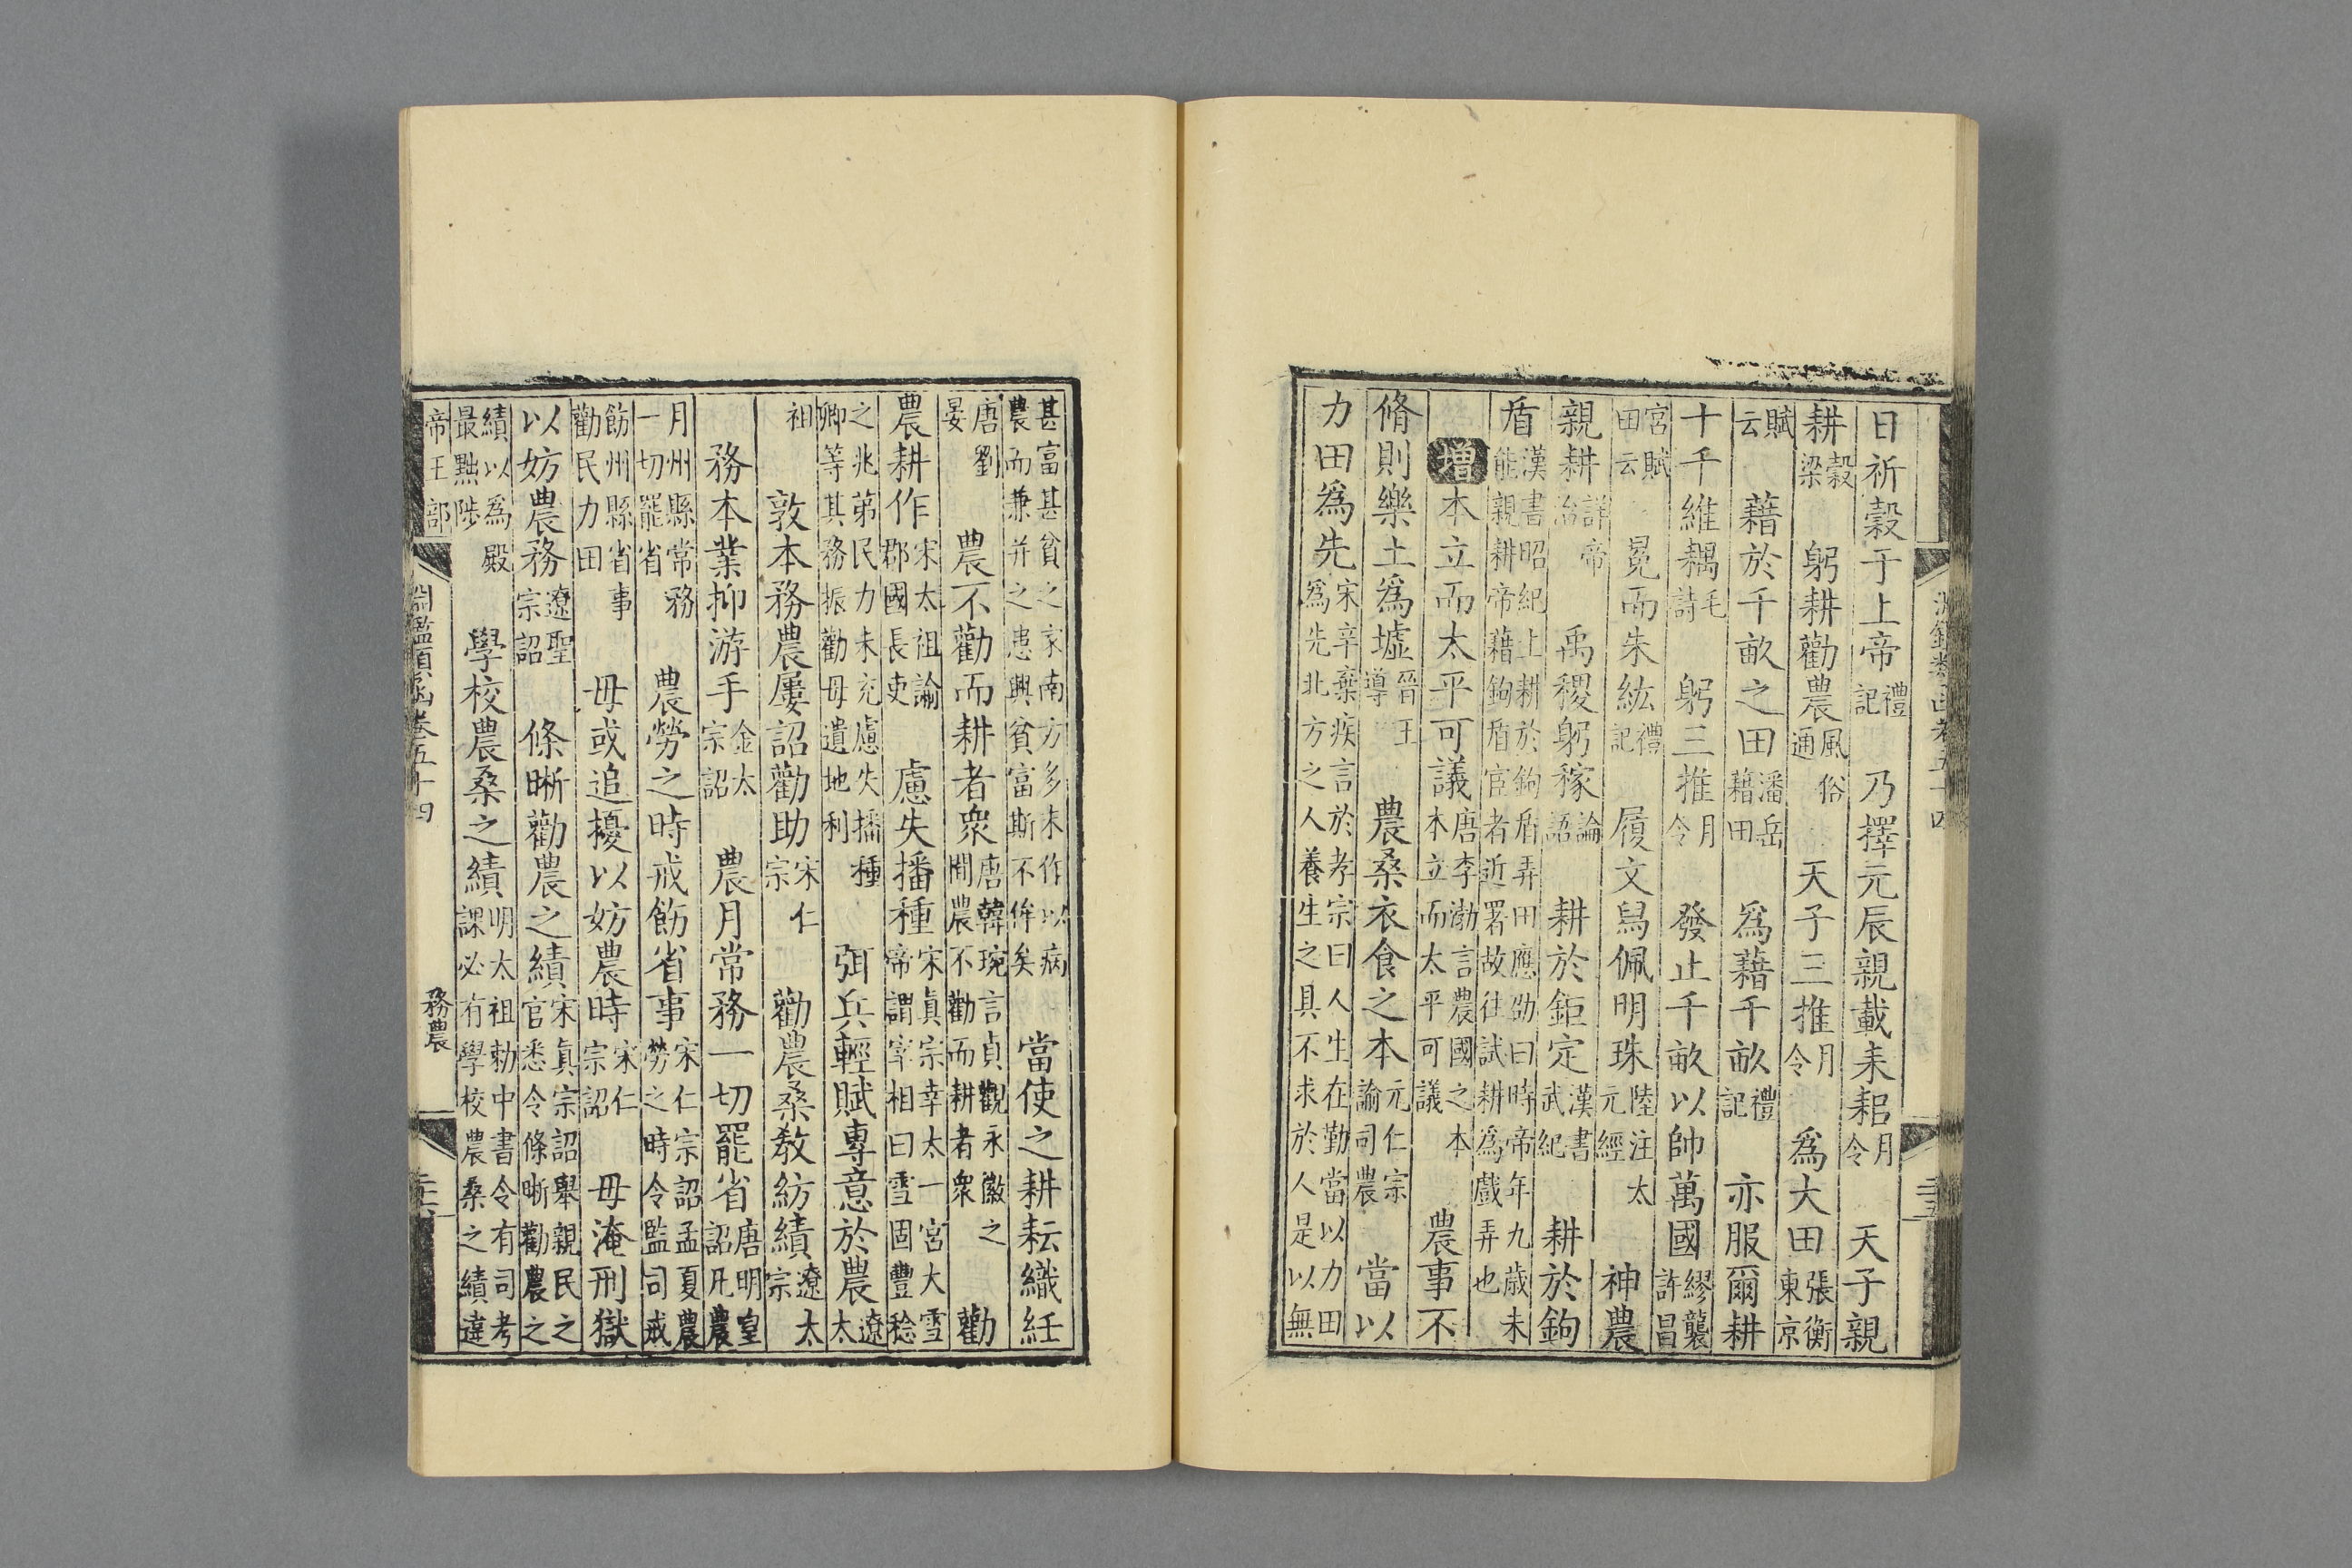 日祈穀于上帝禮記 乃擇元辰親載耒耜月令 天子親
耕穀梁 躬耕勸農風俗通 天子三推月令 爲大田張衡東京
賦云 藉於千畝之田潘岳藉田 爲藉千畝禮記 亦服爾耕
十千維耦毛詩 躬三推月令 發止千畝以帥萬國繆襲許昌
宮賦田云 冕而朱紘禮記 履文舄佩明珠陸注太元經 神農
親耕詳帝治 禹稷躬稼論語 耕於鉅定漢書武紀 耕於鉤
盾漢書昭紀上耕於鉤盾弄田應劭曰時帝年九歲未能親耕帝藉鉤盾宦者近署故往試耕爲戲弄也
增本立而太平可議唐李渤言農國之本本立而太平可議 農事不
脩則樂土爲墟晉王導 農桑衣食之本元仁宗諭司農 當以
力田爲先宋辛棄疾言於孝宗曰人生在勤當以力田爲先北方之人養生之具不求於人是以無
甚富甚貧之家南方多末作以病農而兼并之患興貧富斯不侔矣 當使之耕耘織紝
唐劉晏 農不勸而耕者衆唐韓琬言貞觀永徽之間農不勸而耕者衆 勸
農耕作宋太祖諭郡國長吏 慮失播種宋眞宗幸太一宮大雪帝謂宰相曰雪固豐稔
之兆第民力未充慮失播種卿等其務振勸毋遺地利 弭兵輕賦專意於農遼太
祖 敦本務農屢詔勸助宋仁宗 勸農桑教紡績遼太宗
務本業抑游手金太宗詔 農月常務一切罷省唐明皇詔凡農
月州縣常務一切罷省 農勞之時戒飭省事宋仁宗詔孟夏農勞之時令監司戒
飭州縣省事勸民力田 毋或追擾以妨農時宋仁宗詔 毋淹刑獄
以妨農務遼聖宗詔 條晰勸農之績宋眞宗詔舉親民之官悉令條晰勸農之
績以爲殿最黜陟 學校農桑之績明太祖勅中書令有司考課必有學校農桑之績違
帝王部 淵鑑類函卷五十四 務農 二十六